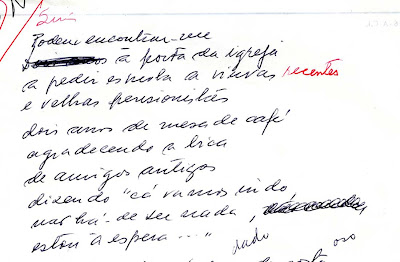 Podem encontrar-me
à porta da igreja
a pedir esmola a viúvas recentes
e velhas pensionistas
dois anos de mesa de café
agradecendo a bica
de amigos antigos
dizendo "cá vamos indo,
não há-de ser nada,
estou à espera ..."